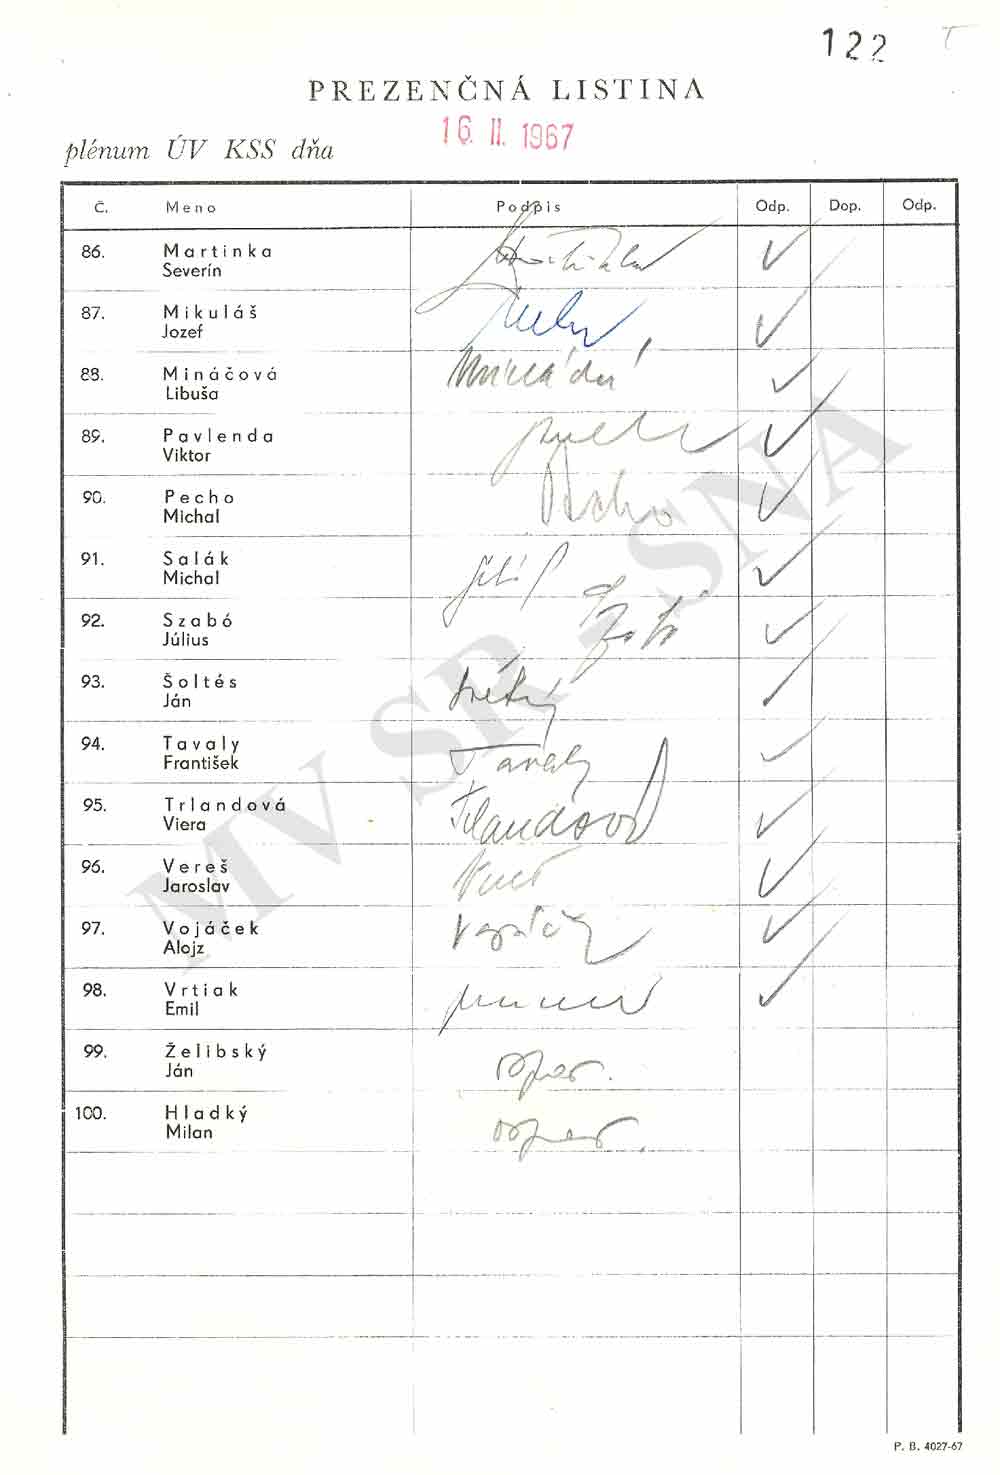 122
PREZENČNÁ LISTINA
plénum ÚV KSS dňa 16. II. 1967
Č. Meno Podpis Odp. Dop. Odp.
86. Martinka
Severín
87. Mikuláš
Jozef
88. Mináčová
Libuša
89. Pavlenda
Viktor
90. Pecho Pecho
Michal
91. Salák
Michal
92. Szabó
Július
93. Šoltés
Ján
94. Tavaly Tavaly
František
95. Trlandová Trlandová
Viera
96. Vereš
Jaroslav
97. Vojáček
Alojz
98. Vrtiak
Emil
99. Želibský
Ján
100. Hladký
Milan
MV SR - SNA
P. B. 4027-67